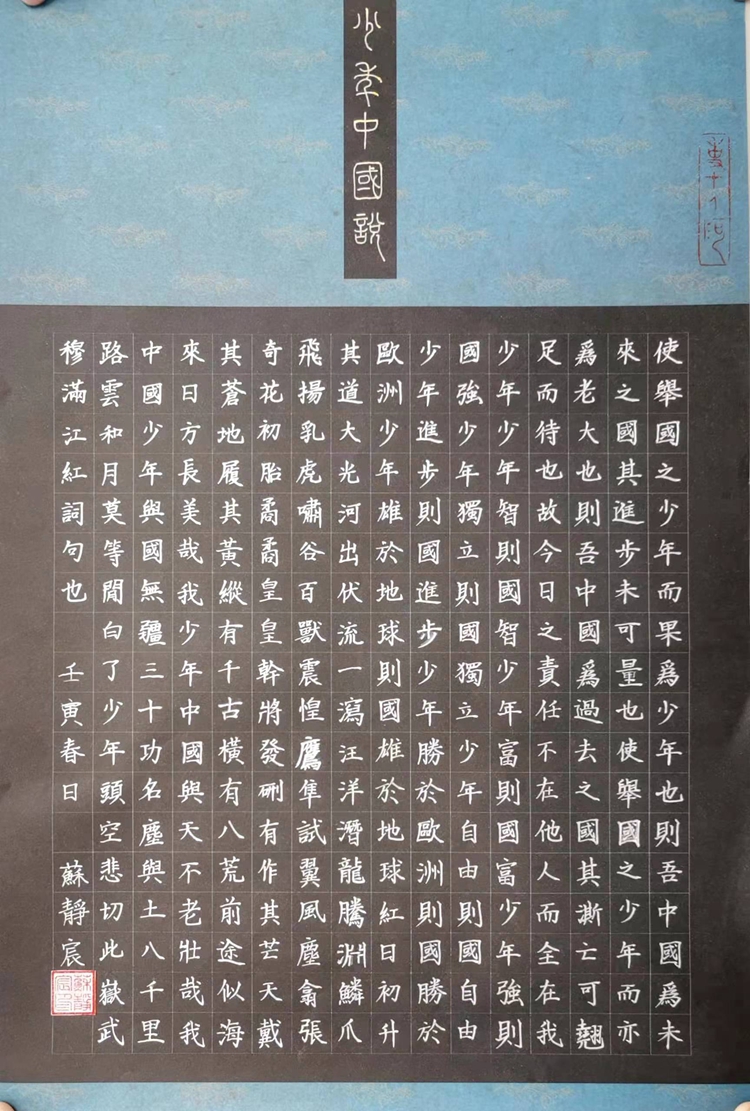 少年中國說
使舉國之少年而果爲少年也則吾中國爲未
來之國其進步未可量也使舉國之少年而亦
爲老大也則吾中國爲過去之國其澌亡可翹
足而待也故今日之責任不在他人而全在我
少年少年智則國智少年富則國富少年強則
國強少年獨立則國獨立少年自由則國自由
少年進步則國進步少年勝於歐洲則國勝於
歐洲少年雄於地球則國雄於地球紅日初升
其道大光河出伏流一瀉汪洋潛龍騰淵鱗爪
飛揚乳虎嘯谷百獸震惶鷹隼試翼風塵翕張
奇花初胎矞矞皇皇幹將發硎有作其芒天戴
其蒼地履其黃縱有千古橫有八荒前途似海
來日方長美哉我少年中國與天不老壯哉我
中國少年與國無疆三十功名塵與土八千里
路雲和月莫等閒白了少年頭空悲切此嶽武
穆滿江紅詞句也 壬寅春日 蘇靜宸
蘇靜宸印